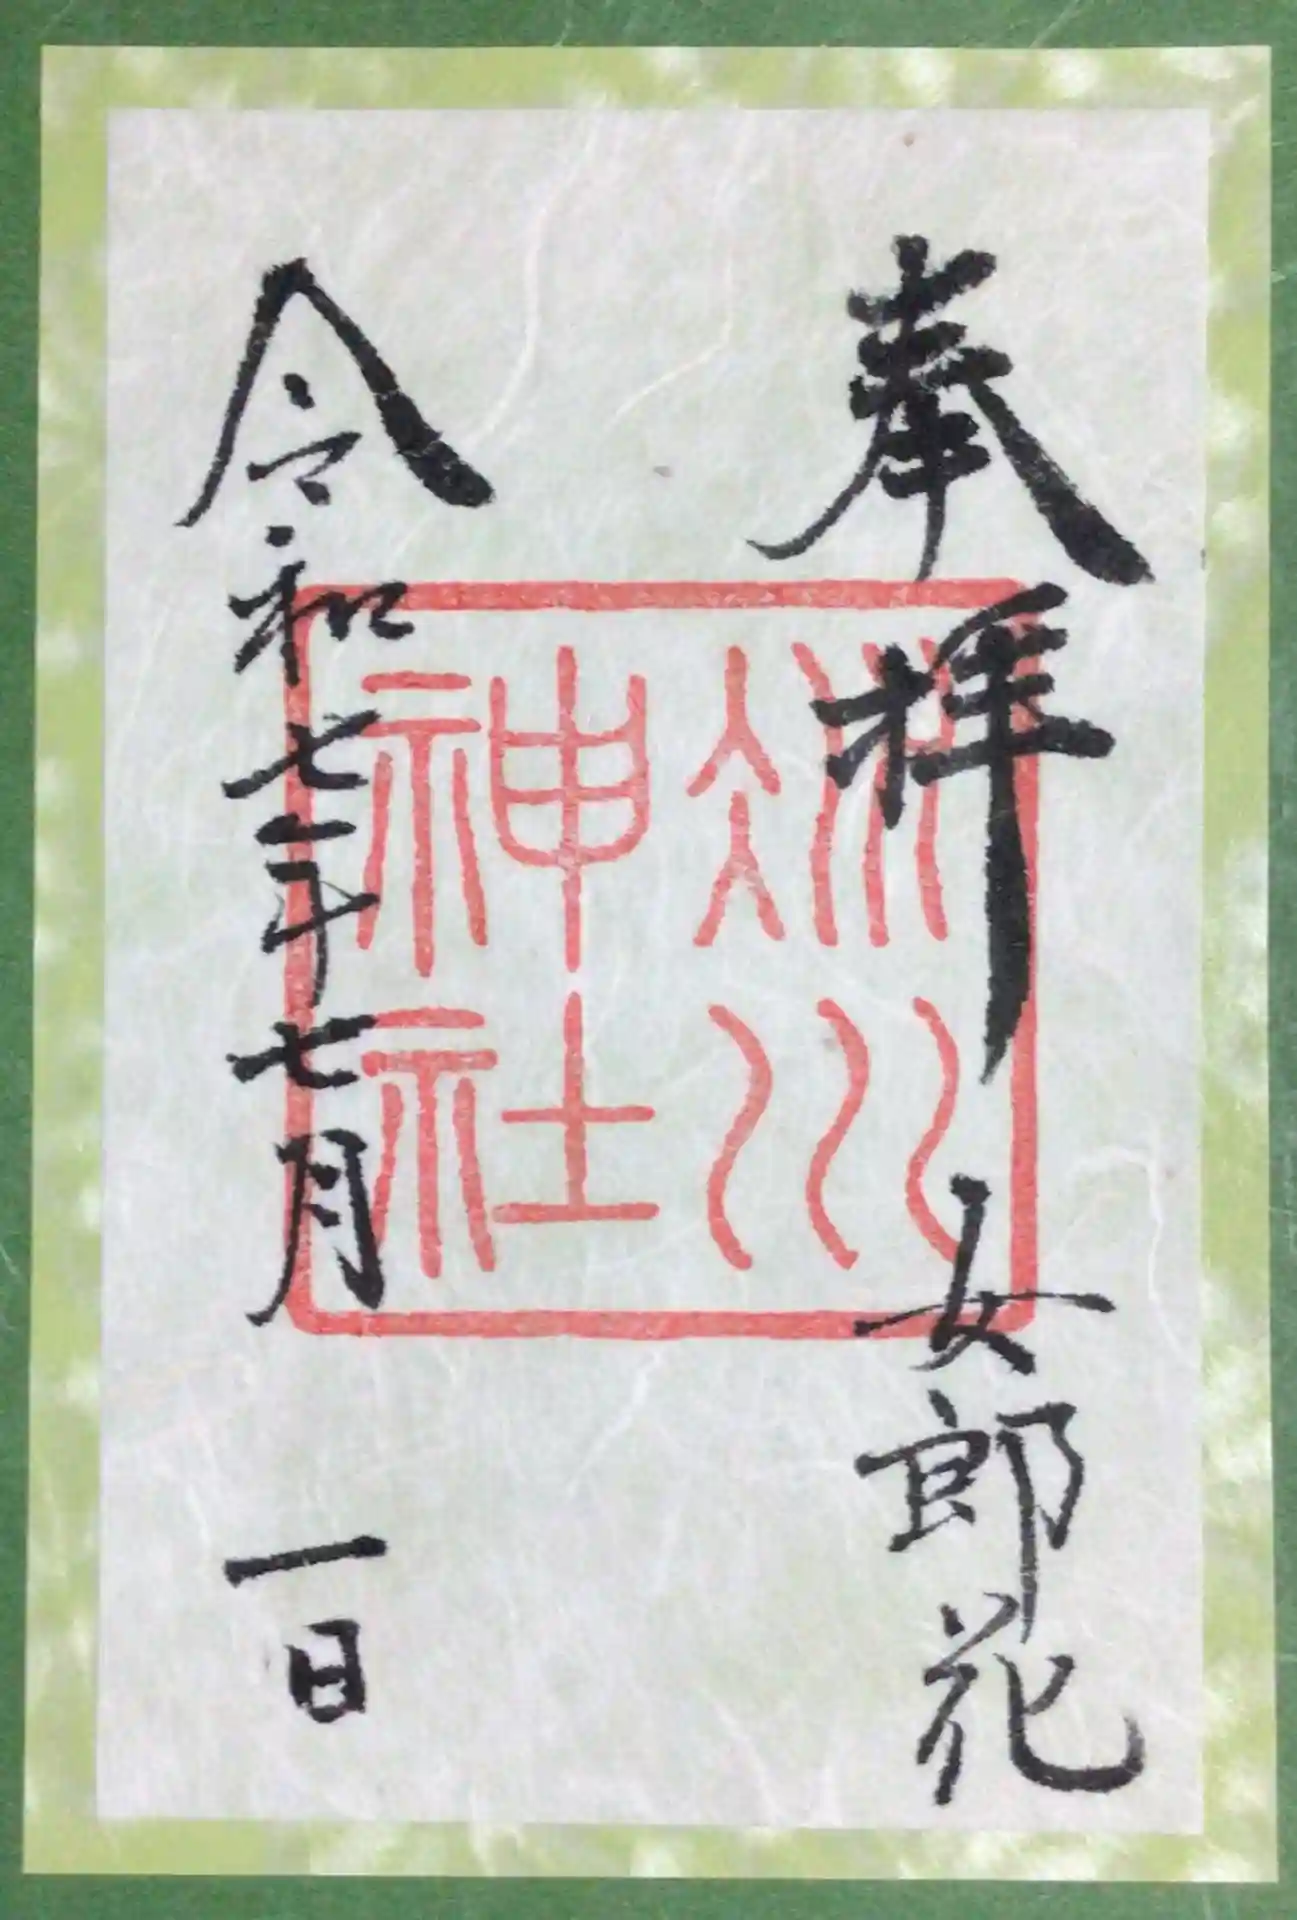 奉拝 女郎花
冰川
神社
令和七年七月一日